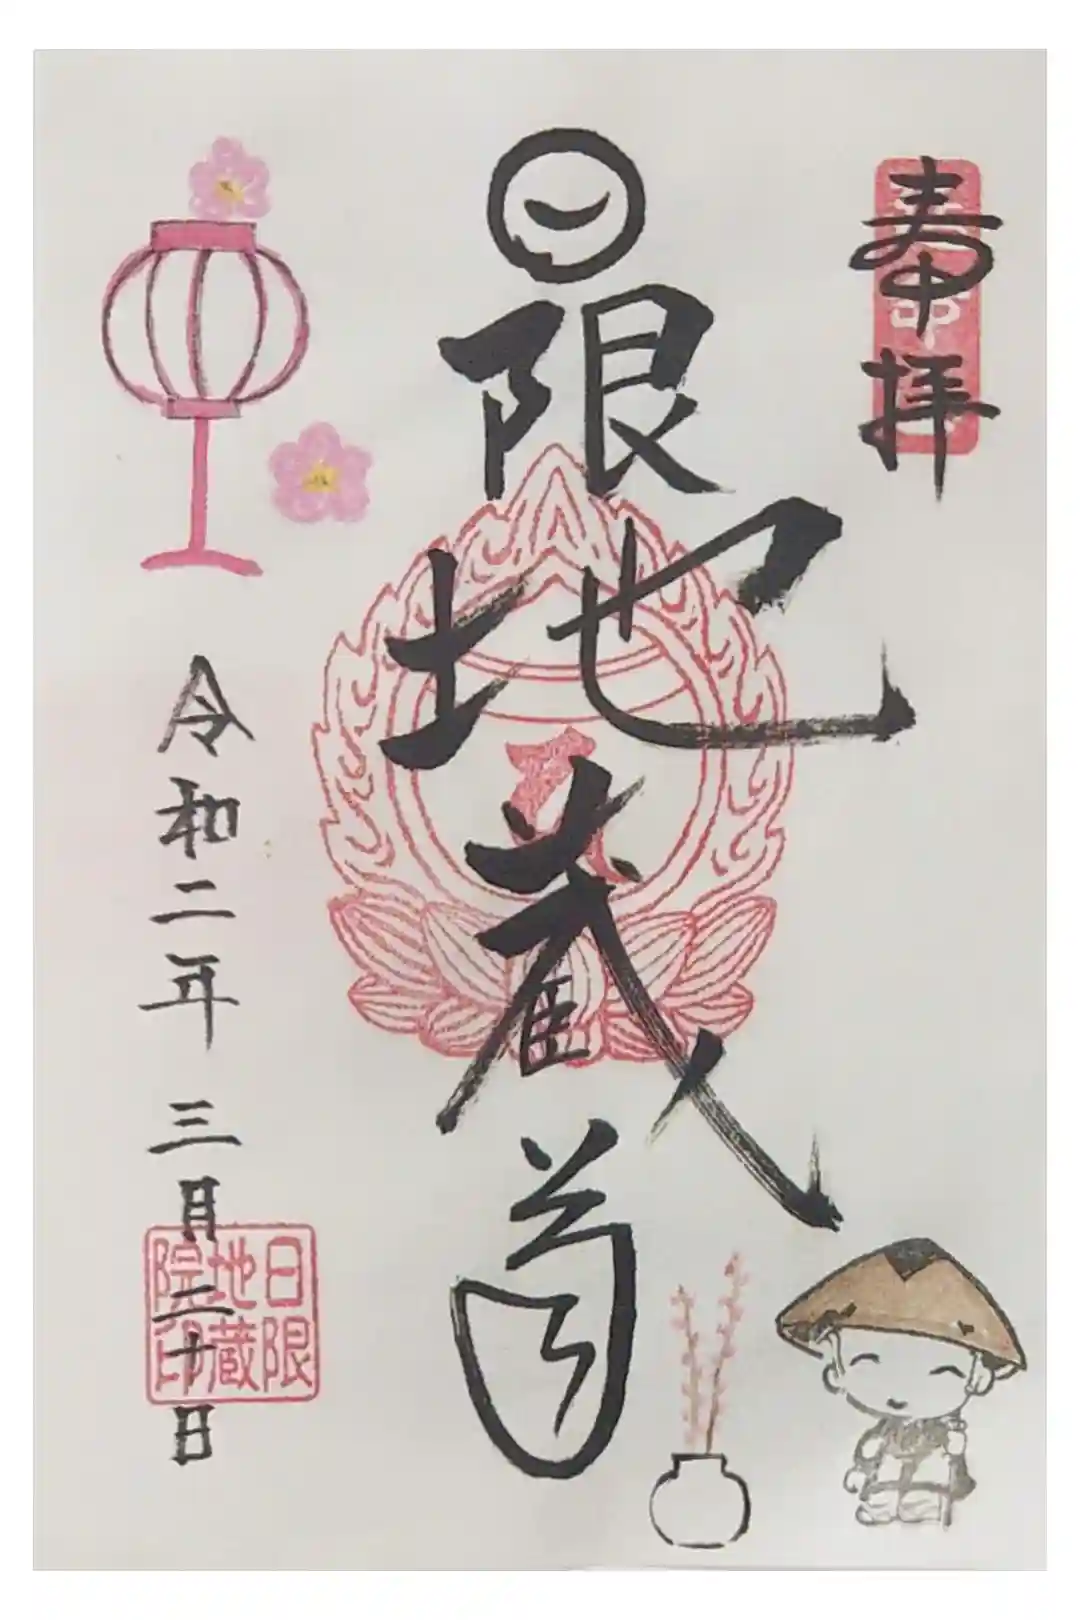 奉拝
日限地蔵尊
令和二年 三月二十日
日限
地蔵
院印